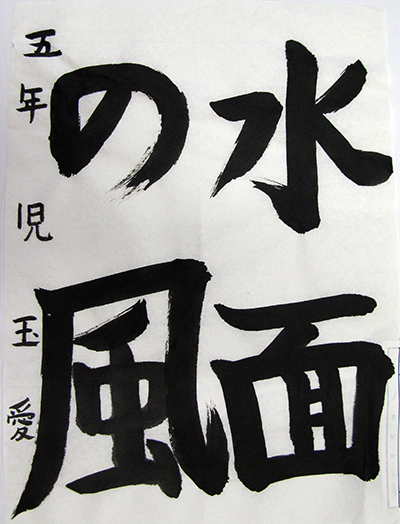 水面
の風
五年 児玉愛